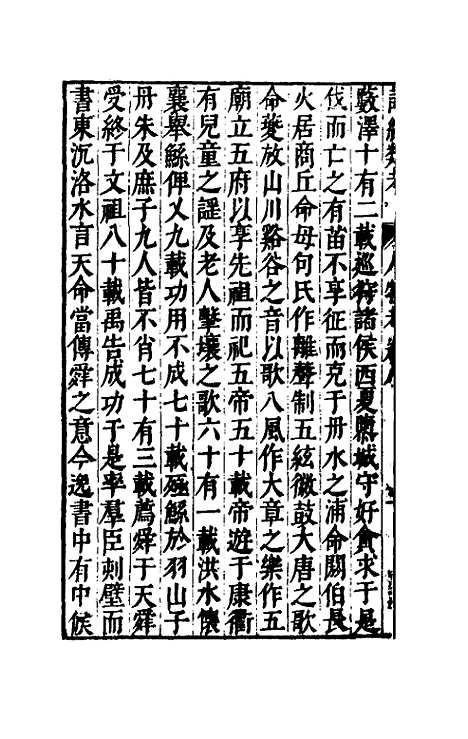 詩經類考
人物考
藪澤十有二載巡狩諸侯西夏隳城守好貪求于是
伐而亡之有苗不享征而克于丹水之浦命閼伯長
火居商丘命母句氏作離聲制五絃徽鼓大唐之歌
命夔放山川谿谷之音以歌八風作大章之樂作五
廟立五府以享先祖而祀五帝五十載帝遊于康衢
有兒童之謡及老人擊壤之歌六十有一載洪水懷
襄舉鯀俾乂九載功用不成七十載殛鯀於羽山子
丹朱及庶子九人皆不肖七十有三載薦舜于天舜
受終于文祖八十載禹告成功于是率羣臣刺壁而
書東沉洛水言天命當傳舜之意今逸書中有中候